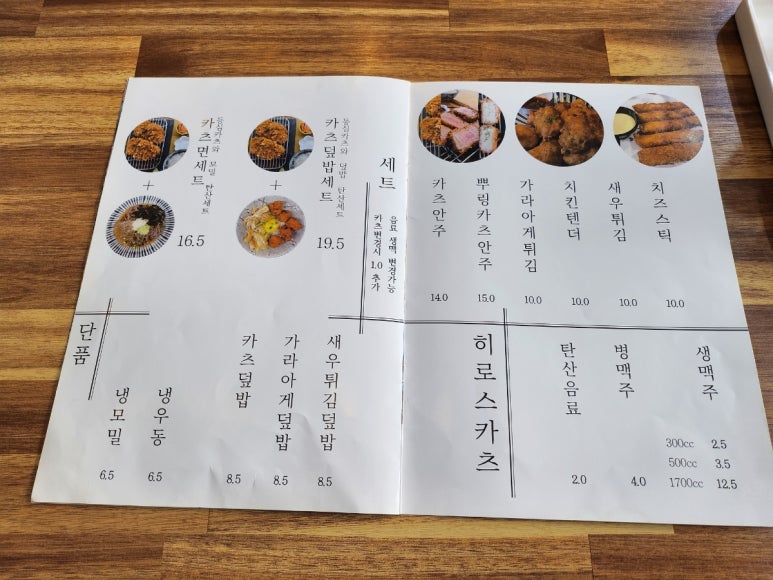 세트
음료 생맥 변경가능
카츠변경시 1.0 추가
카츠덮밥세트
등심카츠와 덮밥 탄산세트
+
19.5
카츠면세트
등심카츠와 모밀 탄산세트
+
16.5
단품
냉모밀
6.5
냉우동
6.5
카츠덮밥
8.5
가라아게덮밥
8.5
새우튀김덮밥
8.5
카츠안주
14.0
뿌링카츠안주
15.0
가라아게튀김
10.0
치킨텐더
10.0
새우튀김
10.0
치즈스틱
10.0
히로스카츠
탄산음료
2.0
병맥주
4.0
생맥주
300cc 2.5
500cc 3.5
1700cc 12.5